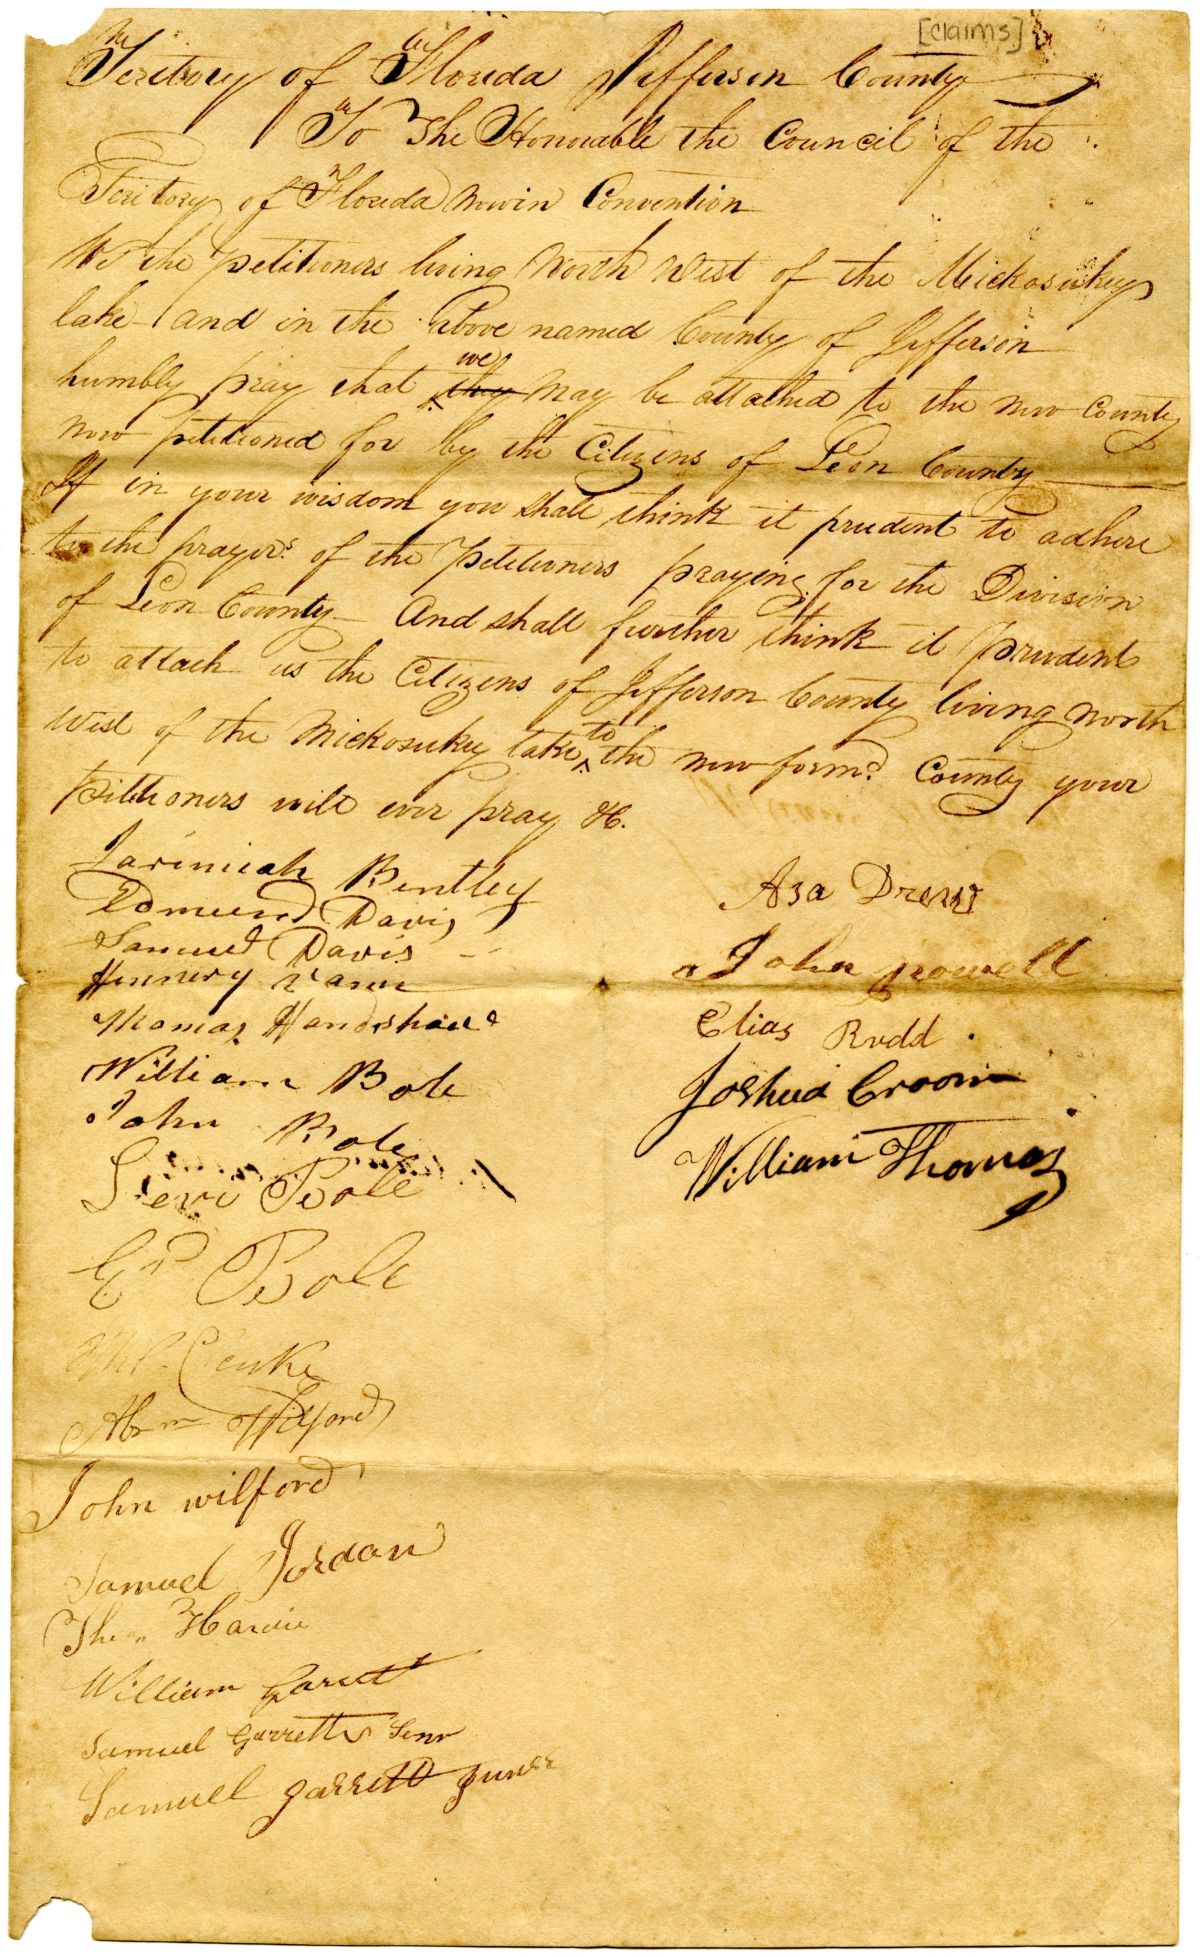 [claims]
Teritory of Florida Jefferson County
To The Honouable the Council of the
Teritory of Florida now in Convention
We the petitioners living North West of the Mickasukey
lake and in the above named County of Jefferson
humbly pray that they we may be attached to the new County
now petitioned for by the Citizens of Leon County
If in your wisdom you shall think it prudent to adhere
to the prayers of the Petitioners praying for the Division
of Leon County And shall further think it prudent
to attach us the Citizens of Jefferson County living north
West of the Mickosukey lake to the new formd County your
petitioners will ever pray &c.
Jarimiah Bentley
Edmund Davis
Samuel Davis
Hennery Vann
Thomas Handshaw
William Bole
John Bole
Levi Bole
Ed Bole
Abrm Wilford
John wilford
Samuel Jordan
William Garett
Samuel Garrett Senr
Samuel garrett Junr
Asa Drew
John Powell
Elias Rudd
Joshua Croom
William Thomas